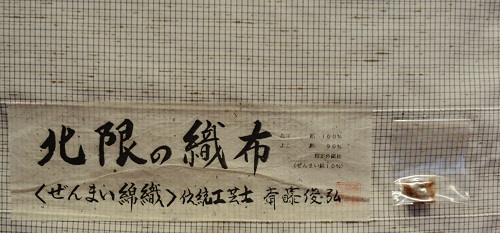 北限の織布
たて 綿 100%
よこ 綿 90%
(ぜんまい綿10%)
〈ぜんまい綿織〉伝統工芸士 斉藤俊弘